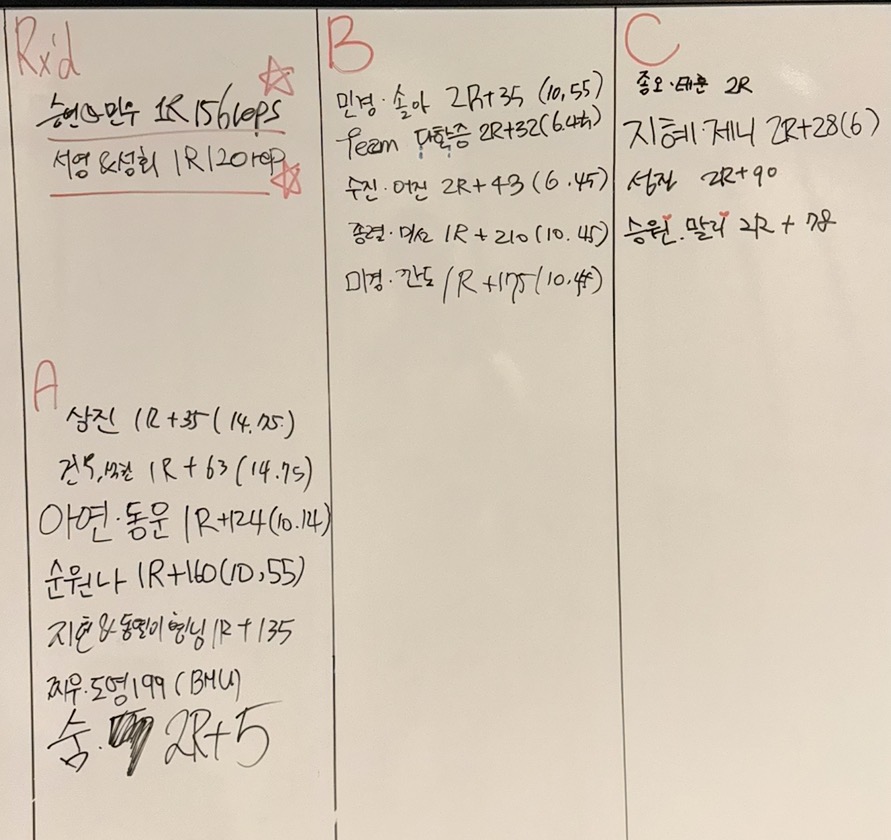 Rx'd
승현&민수 1R 156reps
서영&성희 1R 120rep
A
삼진 1R+35(14.75)
건우, 1R+63(14.75)
아연·동운 1R+124(10.14)
순원나 1R+160(10,55)
지현&동원이형님 1R+135
찌우·도영 199(BMU)
숨. 2R+5
B
민경·솔아 2R+35(10,55)
Team 다학증 2R+32(6.45)
수진·어진 2R+43(6.45)
종렬·미소 1R+210(10.45)
미경·깐도 1R+175(10.45)
C
종오·태훈 2R
지혜·제니 2R+28(6)
성진 2R+90
승원.말리 2R+78